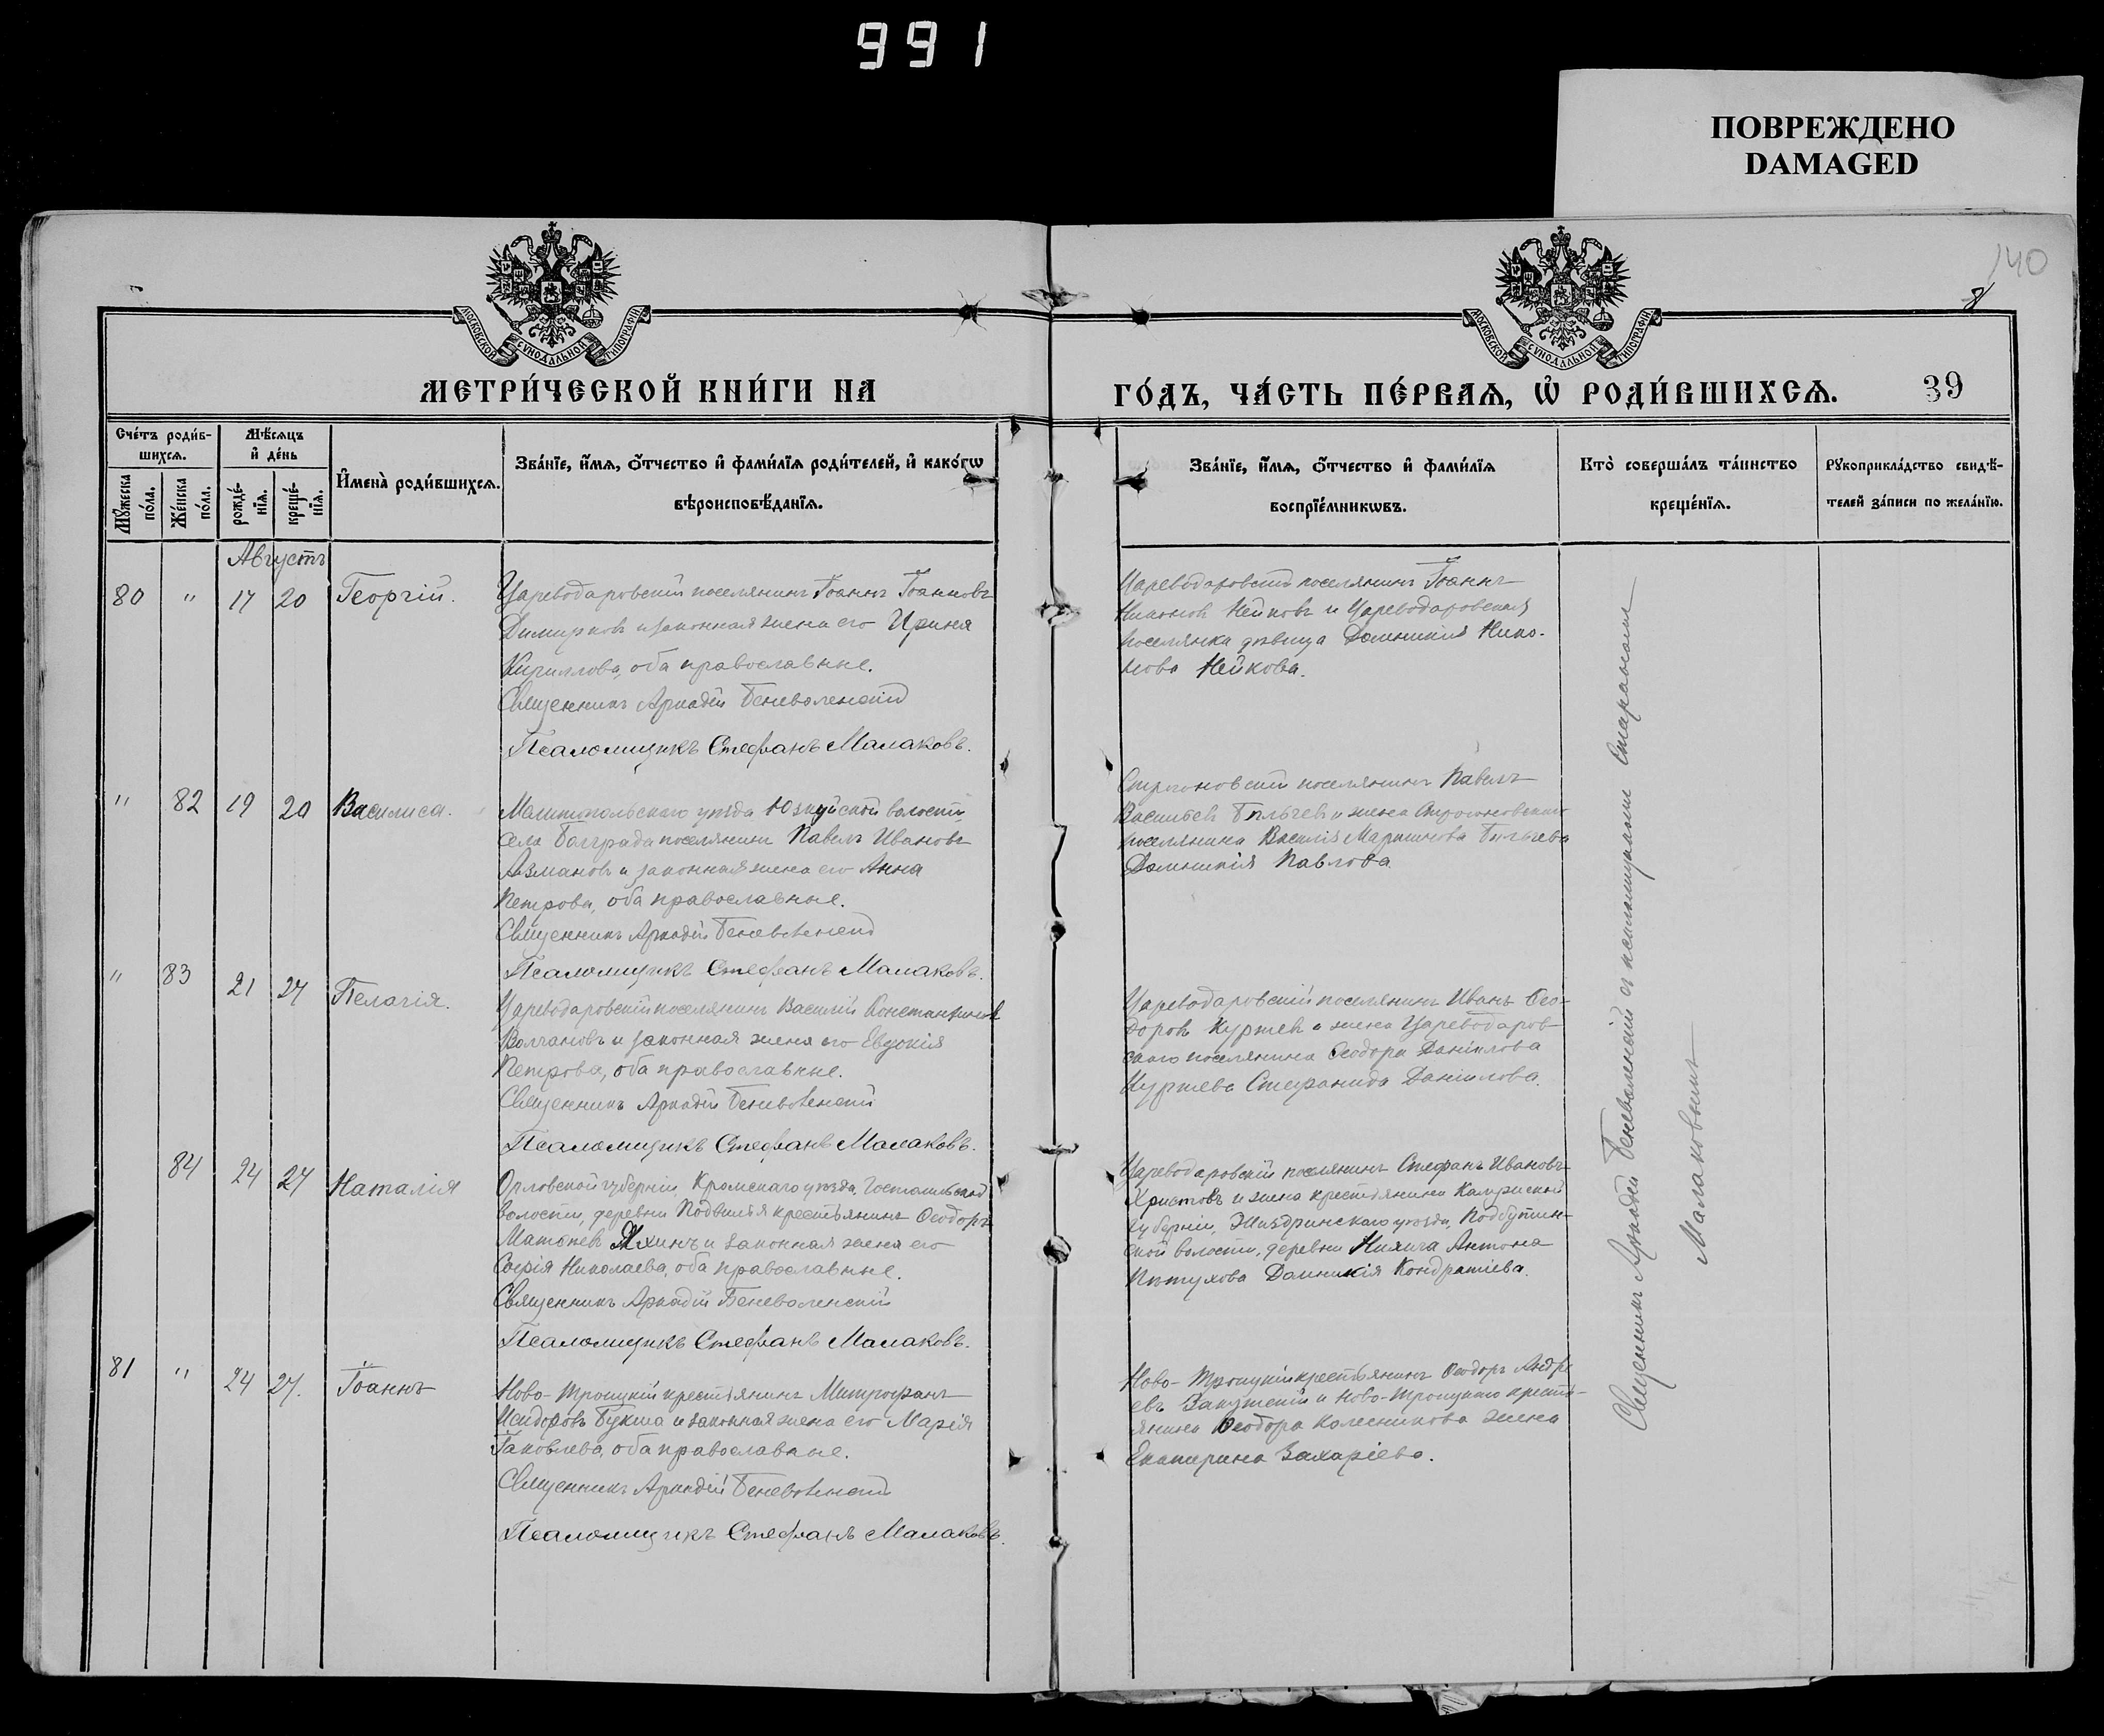 991
ПОВРЕЖДЕНО
DAMAGED
140
8
МОСКОВСКОЙ СѴНОДАЛЬНОЙ ТИПОГРАФІИ
МОСКОВСКОЙ СѴНОДАЛЬНОЙ ТИПОГРАФІИ
МЕТРИ́ЧЕСКОЙ КНИ́ГИ НА
ГО́ДЪ, ЧА́СТЬ ПЕ́РВАѦ, Ѽ РОДИ́ВШИХСѦ.
39
Сче́тъ роди́в-
шихсѧ.
Мѣ́сѧцъ
и҆ де́нь
Мꙋ́жеска
по́ла.
Же́нска
по́ла.
рожде́-
нїѧ.
креще́-
нїѧ.
И҆мена̀ роди́вшихсѧ.
Зва́нїе, и҆́мѧ, ѻ҆́тчество и҆ фами́лїѧ роди́телей, и҆ како́гѡ
вѣроисповѣ́данїѧ.
Зва́нїе, и҆́мѧ, ѻ҆́тчество и҆ фами́лїѧ
воспрїе́мникѡвъ.
Кто̀ соверша́лъ та́инство
креще́нїѧ.
Рꙋкоприкла́дство свидѣ́-
телей за́писи по жела́нїю.
Августъ
80 " 17 20 Георгій.
Цареводаровскій поселянинъ Іоаннъ Іоанновъ
Димирковъ и законная жена его Ирина
Кириллова, оба православные.
Священникъ Аркадій Беневоленскій
Псаломщикъ Стефанъ Малаковъ.
Цареводаровскій поселянинъ Іоаннъ
Никоновъ Нейковъ и Цареводаровская
поселянка дѣвица Домникія Нико-
нова Нейкова.
" 82 19 20 Василиса.
Мелитопольскаго уѣзда Юзкуйской волости,
села Болграда поселянинъ Павелъ Ивановъ
Азмановъ и законная жена его Анна
Петрова, оба православные.
Священникъ Аркадій Беневоленскій
Псаломщикъ Стефанъ Малаковъ.
Строгоновскій поселянинъ Павелъ
Васильевъ Бѣльчевъ и жена Строгоновскаго
поселянина Василія Мартинова Бѣльчева
Домникія Павлова
" 83 21 27 Пелагія.
Цареводаровскій поселянинъ Василій Константиновъ
Волчановъ и законная жена его Евдокія
Петрова, оба православные.
Священникъ Аркадій Беневоленскій
Псаломщикъ Стефанъ Малаковъ.
Цареводаровскій поселянинъ Иванъ Ѳео-
доровъ Куртевъ и жена Цареводаров-
скаго поселянина Ѳеодора Даніилова
Куртева Стефанида Даніилова.
84 24 27 Наталія
Орловской губерніи, Кромскаго уѣзда, Гостомльской
волости, деревни Подвилья крестьянинъ Ѳеодоръ
Матѳеевъ Яхинъ и законная жена его
Софія Николаева, оба православные.
Священникъ Аркадій Беневоленскій
Псаломщикъ Стефанъ Малаковъ.
Цареводаровскій поселянинъ Стефанъ Ивановъ
Христовъ и жена крестьянина Калужской
губерніи, Жиздринскаго уѣзда, Подбужин-
ской волости, деревни Антона
Пѣтухова Домникія Кондратіева.
81 " 24 27. Іоаннъ
Ново-Троицкій крестьянинъ Митрофанъ
Исидоровъ Букша и законная жена его Марія
Іаковлева, оба православные.
Священникъ Аркадій Беневоленскій
Псаломщикъ Стефанъ Малаковъ.
Ново-Троицкій крестьянинъ Ѳеодоръ Андре
евъ и Ново-Троицкаго кресть-
янина Ѳеодора Колесникова жена
Екатерина Захаріева.
Священникъ Аркадій Беневоленскій съ псаломщикомъ Стефаномъ
Малаковымъ